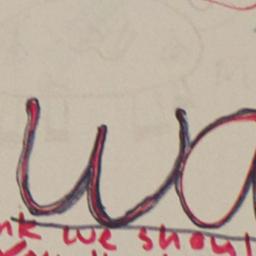 wa
nk we shoul